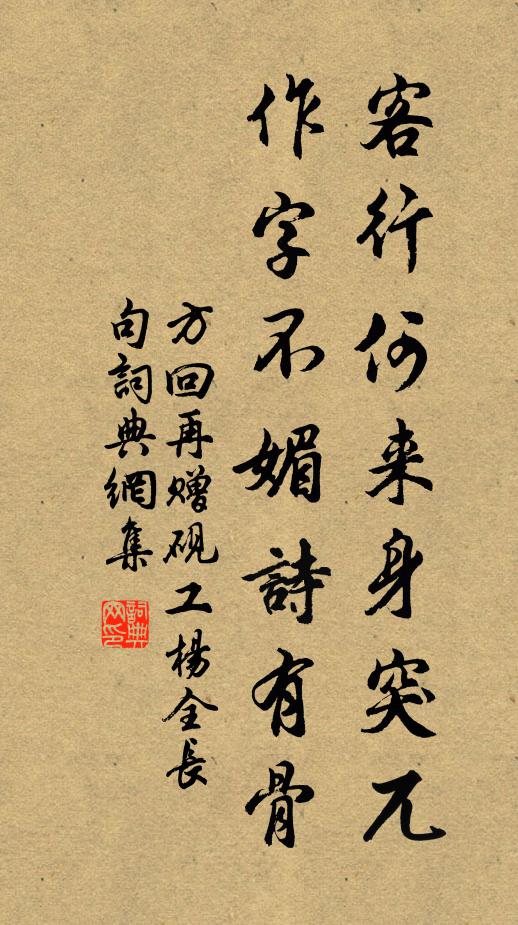 客行何来身突兀
作字不媚詩有骨
方回再赠硯工楊全長
句詞典網集
詞典網印